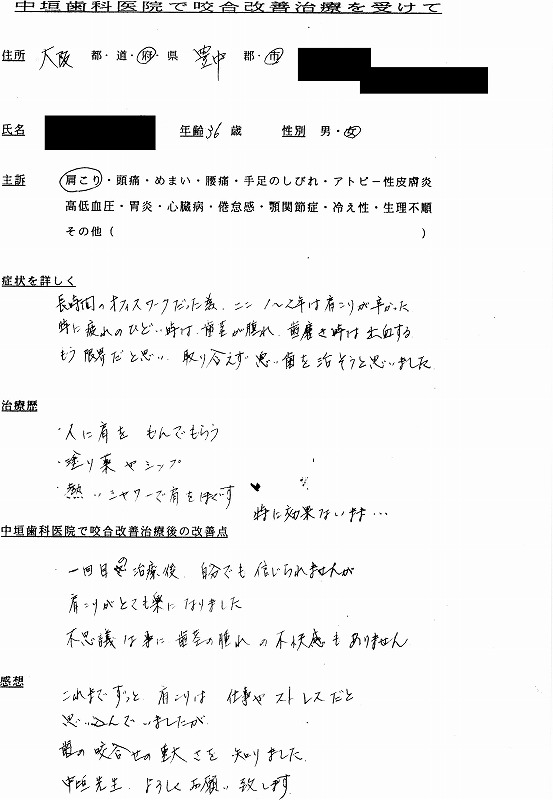 中垣歯科医院で咬合改善治療を受けて
住所 大阪 都・道・府・県 豊中 郡・市
氏名 年齢 36 歳 性別 男・女
主訴 肩こり・頭痛・めまい・腰痛・手足のしびれ・アトピー性皮膚炎
高低血圧・胃炎・心臓病・倦怠感・顎関節症・冷え性・生理不順
その他（ ）
症状を詳しく
長時間のオフィスワークだった為、ここ1〜2年は肩こりが辛かった
時に疲れのひどい時は、歯茎が腫れ、歯磨き時は出血する
もう限界だと思い、取り合えず悪い歯を治そうと思いました
治療歴
・人に肩をもんでもらう
・塗り薬やシップ
・熱いシャワーで肩をほぐす
特に効果ないまま…
中垣歯科医院で咬合改善治療後の改善点
・一回目の治療後、自分でも信じられませんが
肩こりがとても楽になりました
不思議な事に歯茎の腫れの不快感もありません
感想
これまでずっと、肩こりは仕事やストレスだと
思い込んでいましたが、
歯の咬合せの重大さを知りました。
中垣先生、よろしくお願い致します